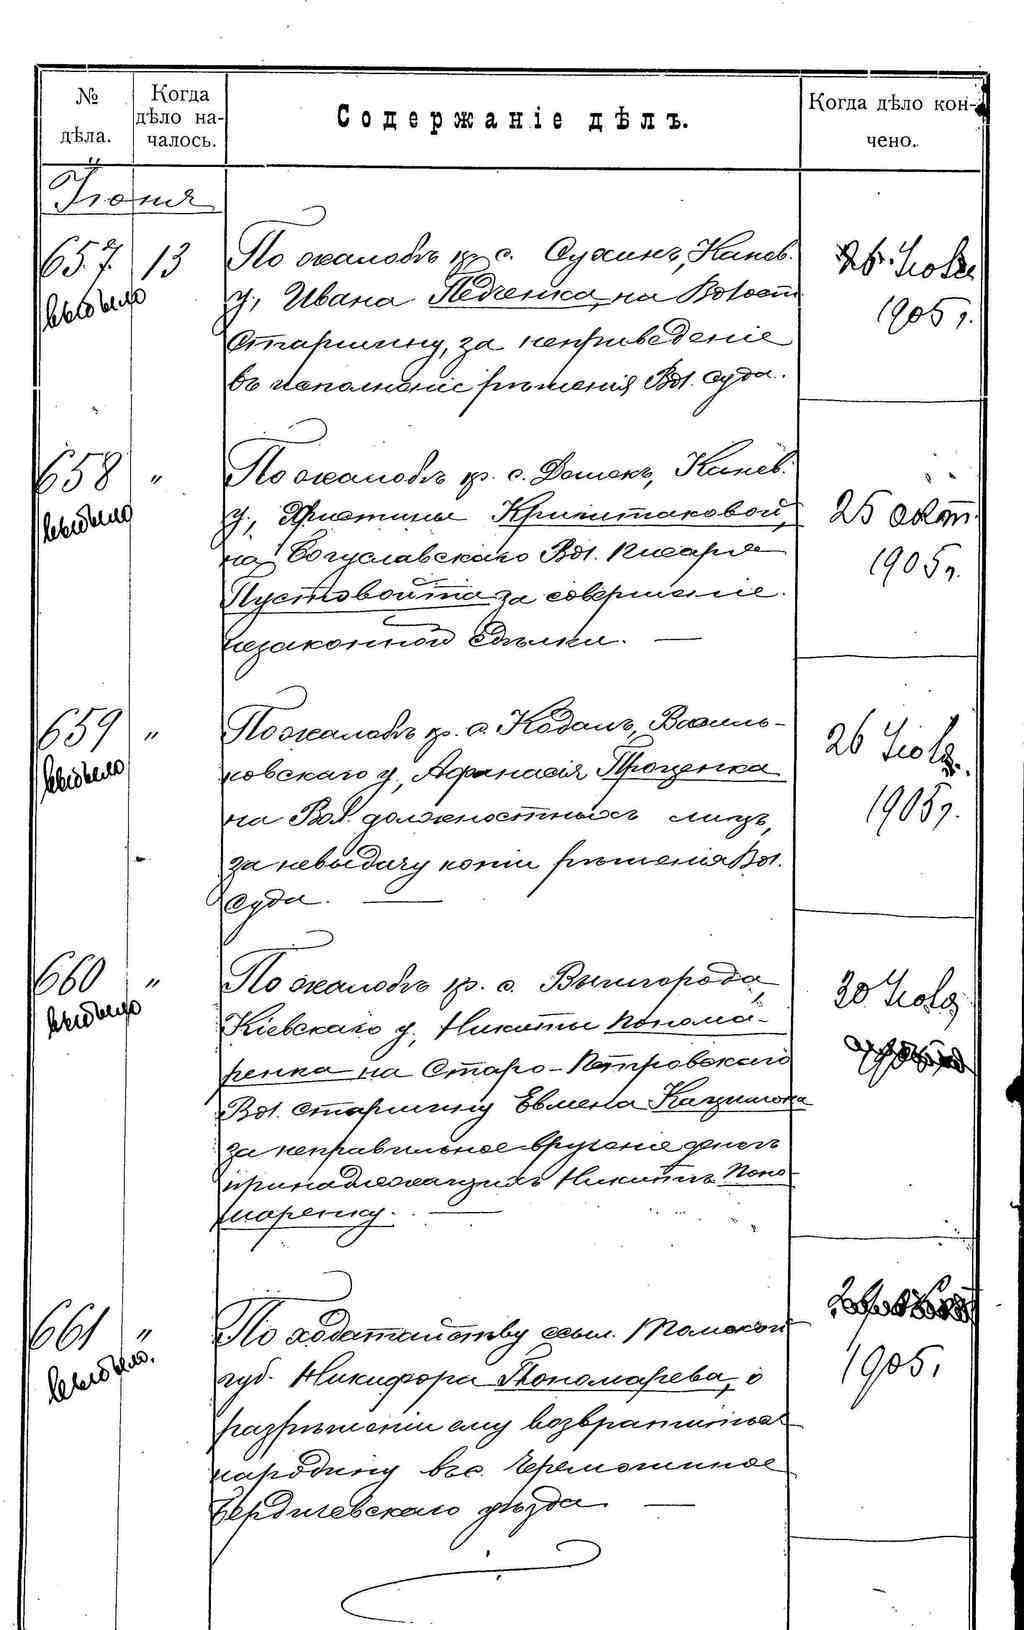 №
дѣла.
Когда
дѣло на-
чалось.
Содержаніе дѣлъ.
Когда дѣло кон-
чено.
Іюня
657 13
выбыло
По жалобѣ кр. с. Сухинъ, Канев.
у, Ивана Педченка, на Волост.
Старшину, за неприведеніе
въ исполненіе рѣшенія Вол. суда.
26 Ноя
1905 г.
658 "
выбыло
По жалобѣ кр. с. Дешекъ, Канев.
у, Христины
на Богуславскаго Вол. писаря
Пустовойта за совершеніе
незаконной сдѣлки. —
25 окт.
1905 г.
659 "
выбыло
По жалобѣ кр. с. Кодакъ, Василь-
ковскаго у, Афанасія Проценка
на Вол. должностныхъ лицъ,
за невыдачу копіи рѣшенія Вол.
суда. —
26 Ноя
1905 г.
660 "
выбыло
По жалобѣ кр. с. Вышгорода,
Кіевскаго у, Никиты Понома-
ренка на Старо-Петровскаго
Вол. старшину Евмена
за неправильное врученіе денегъ
принадлежащихъ Никитѣ Поно-
маренку. —
30 Ноя
661 "
выбыло.
По ходатайству ссыл. Томской
губ. Никифора Пономарева, о
разрѣшеніи ему возвратиться
на родину въ с. Черемошное
Бердичевскаго уѣзда —
1905.